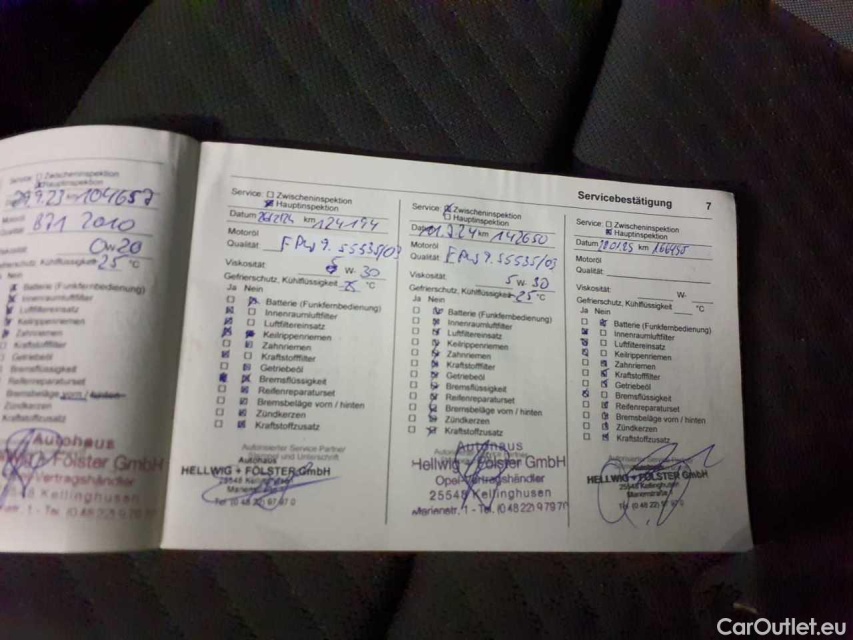 Servicebestätigung 7
Service: Zwischeninspektion
Hauptinspektion
29.9.23 104657
871 2010
0W20
-25 °C
Nein
Batterie (Funkfernbedienung)
Innenraumluftfilter
Luftfiltereinsatz
Keilrippenriemen
Zahnriemen
Kraftstofffilter
Getriebeöl
Bremsflüssigkeit
Reifenreparaturset
Bremsbeläge vorn / hinten
Zündkerzen
Kraftstoffzusatz
Autohaus
Fölster GmbH
Vertragshändler
Kellinghusen
1 - Tel. (0 48 22) 9 79 70
Service: Zwischeninspektion
Hauptinspektion
Datum km 124194
Motoröl
Qualität 9.55535/03
Viskosität 5 W- 30
Gefrierschutz, Kühlflüssigkeit °C
Ja Nein
Batterie (Funkfernbedienung)
Innenraumluftfilter
Luftfiltereinsatz
Keilrippenriemen
Zahnriemen
Kraftstofffilter
Getriebeöl
Bremsflüssigkeit
Reifenreparaturset
Bremsbeläge vorn / hinten
Zündkerzen
Kraftstoffzusatz
Autorisierter Service Partner
Stempel und Unterschrift
Autohaus
HELLWIG + FÖLSTER GmbH
25548 Kellinghusen
Tel. (0 48 22) 97 97 0
Service: Zwischeninspektion
Hauptinspektion
Datum km 142650
Motoröl
Qualität 9.55535/03
Viskosität 5 W- 30
Gefrierschutz, Kühlflüssigkeit -25 °C
Ja Nein
Batterie (Funkfernbedienung)
Innenraumluftfilter
Luftfiltereinsatz
Keilrippenriemen
Zahnriemen
Kraftstofffilter
Getriebeöl
Bremsflüssigkeit
Reifenreparaturset
Bremsbeläge vorn / hinten
Zündkerzen
Kraftstoffzusatz
Autohaus
Hellwig + Fölster GmbH
Opel-Vertragshändler
25548 Kellinghusen
Marienstr. 1 - Tel. (0 48 22) 9 79 70
Service: Zwischeninspektion
Hauptinspektion
Datum km 166495
Motoröl
Qualität
Viskosität: W-
Gefrierschutz, Kühlflüssigkeit °C
Ja Nein
Batterie (Funkfernbedienung)
Innenraumluftfilter
Luftfiltereinsatz
Keilrippenriemen
Zahnriemen
Kraftstofffilter
Getriebeöl
Bremsflüssigkeit
Reifenreparaturset
Bremsbeläge vorn / hinten
Zündkerzen
Kraftstoffzusatz
Autohaus
HELLWIG + FÖLSTER GmbH
25548 Kellinghusen
Marienstraße 1
Tel. (0 48 22) 97 97 0
CarOutlet.eu